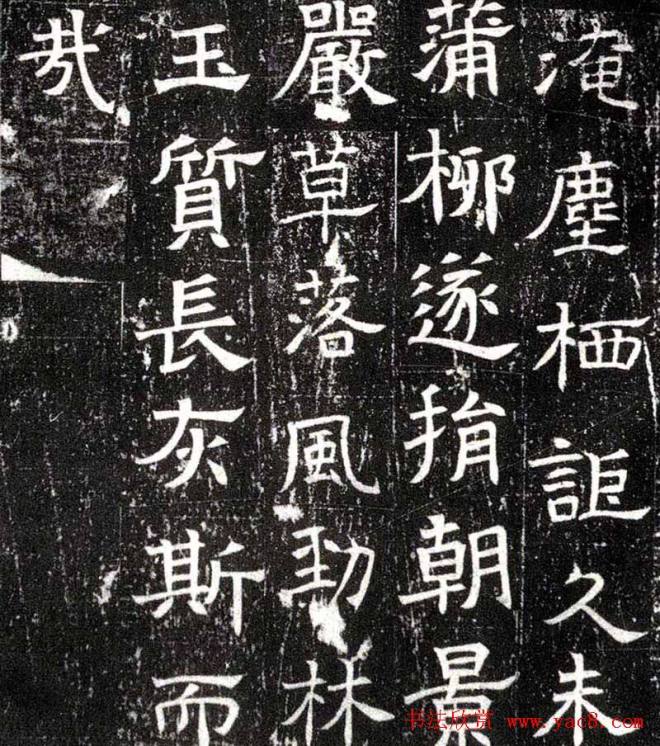 淹塵栖詎久未
蒲柳遂捐朝景
嚴草落風勁林
玉質長灰斯而
哉
书法欣赏 www.yac8.com